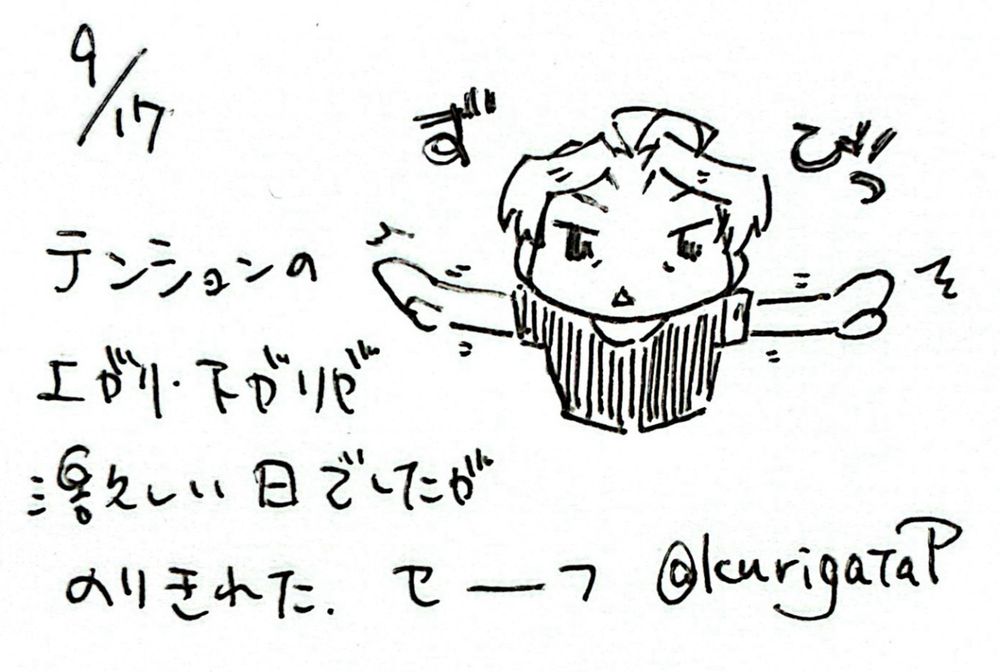 9/17
ずびっ
テンションの
上がり・下がりが
激しい日でしたが
のりきれた. セーフ
@kurigataP